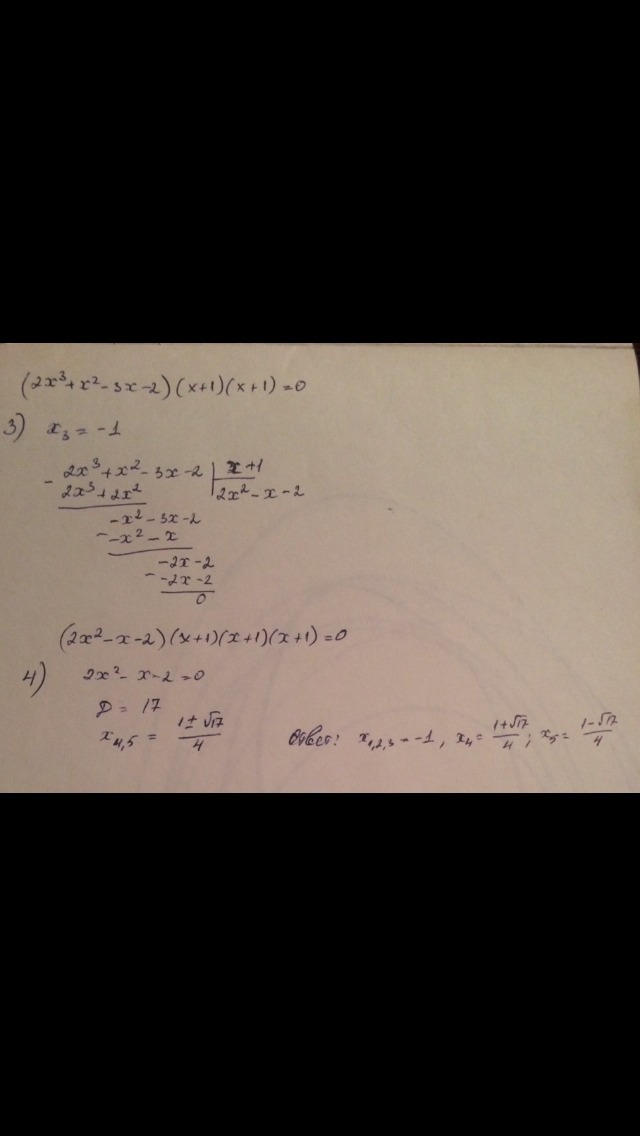 (2x³+x²-3x-2)(x+1)(x+1)=0
3) x₃ = -1
- 2x³+x²-3x-2 | x+1
2x³+2x² 2x²-x-2
-x²-3x-2
- -x²-x
-2x-2
- -2x-2
0
(2x²-x-2)(x+1)(x+1)(x+1)=0
4) 2x²-x-2=0
D = 17
x₄,₅ = (1±√17)/4 Ответ: x₁,₂,₃ = -1, x₄ = (1+√17)/4; x₅ = (1-√17)/4